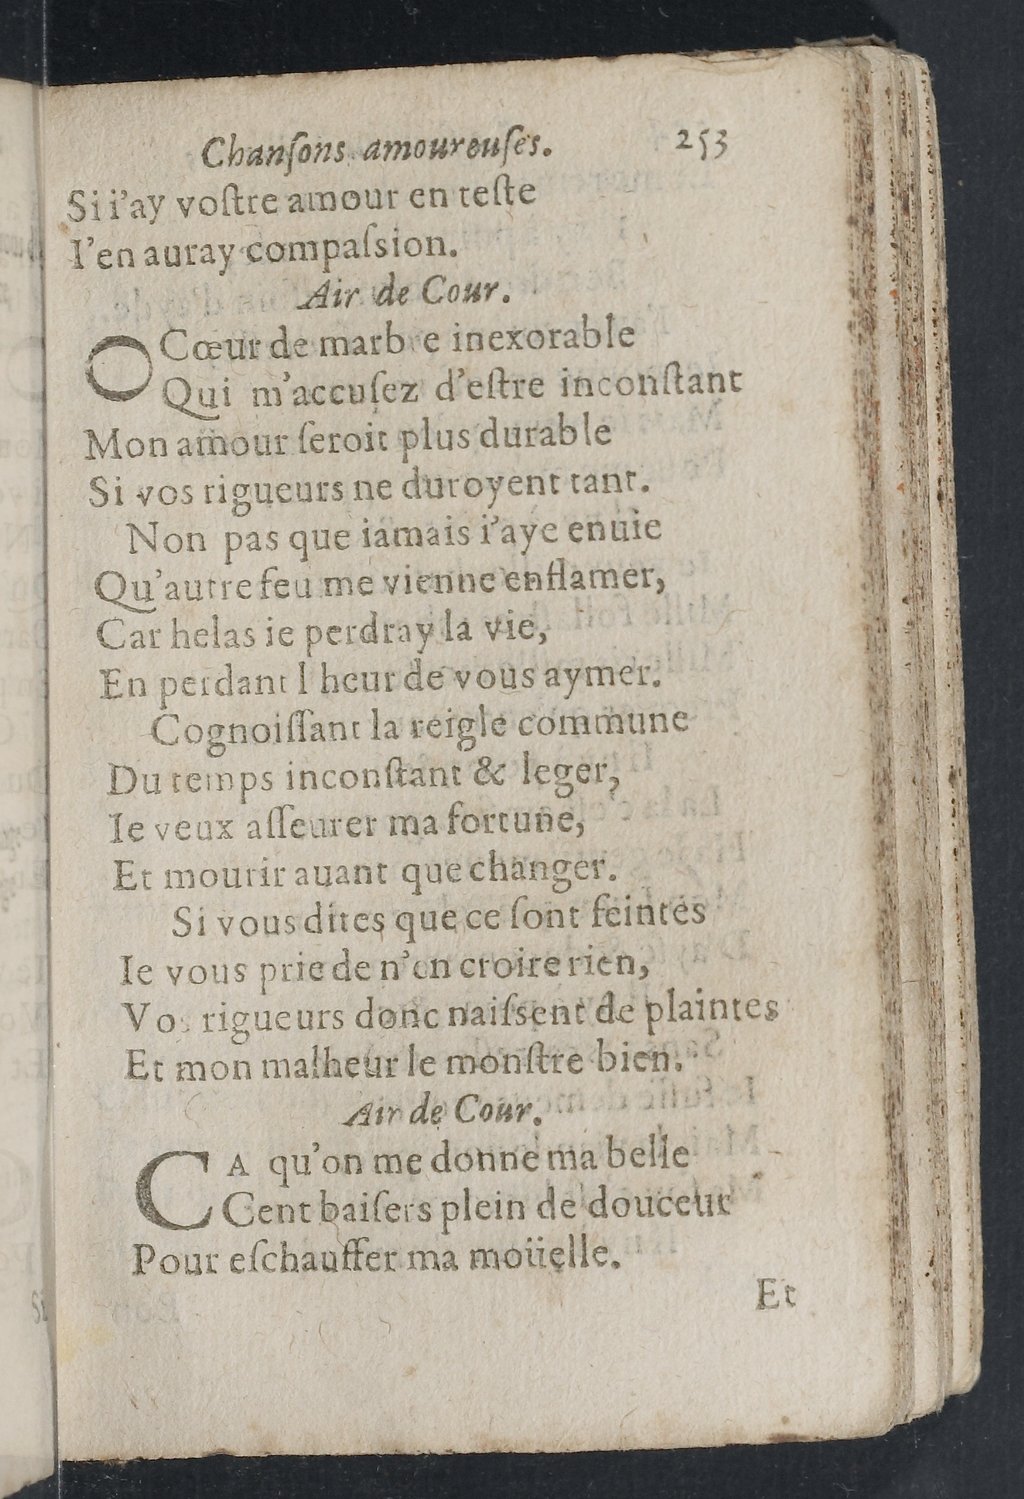 Chanſons amoureuſes. 253
Si i'ay voſtre amour en teſte
I'en auray compaſsion.
Air de Cour.
O Cœur de marb e inexorable
Qui m'accuſez d'eſtre inconſtant
Mon amour ſeroit plus durable
Si vos rigueurs ne duroyent tant.
Non pas que iamais i'aye enuie
Qu'autre feu me vienne enflamer,
Car helas ie perdray la vie,
En perdant l heur de vous aymer.
Cognoiſſant la reigle commune
Du temps inconſtant & leger,
Ie veux aſſeurer ma fortune,
Et mourir auant que changer.
Si vous dites que ce ſont feintes
Ie vous prie de n'en croire rien,
Vos rigueurs donc naiſsent de plaintes
Et mon malheur le monſtre bien.
Air de Cour.
CA qu'on me donne ma belle
Cent baiſers plein de douceur
Pour eſchauffer ma moüelle.
Et